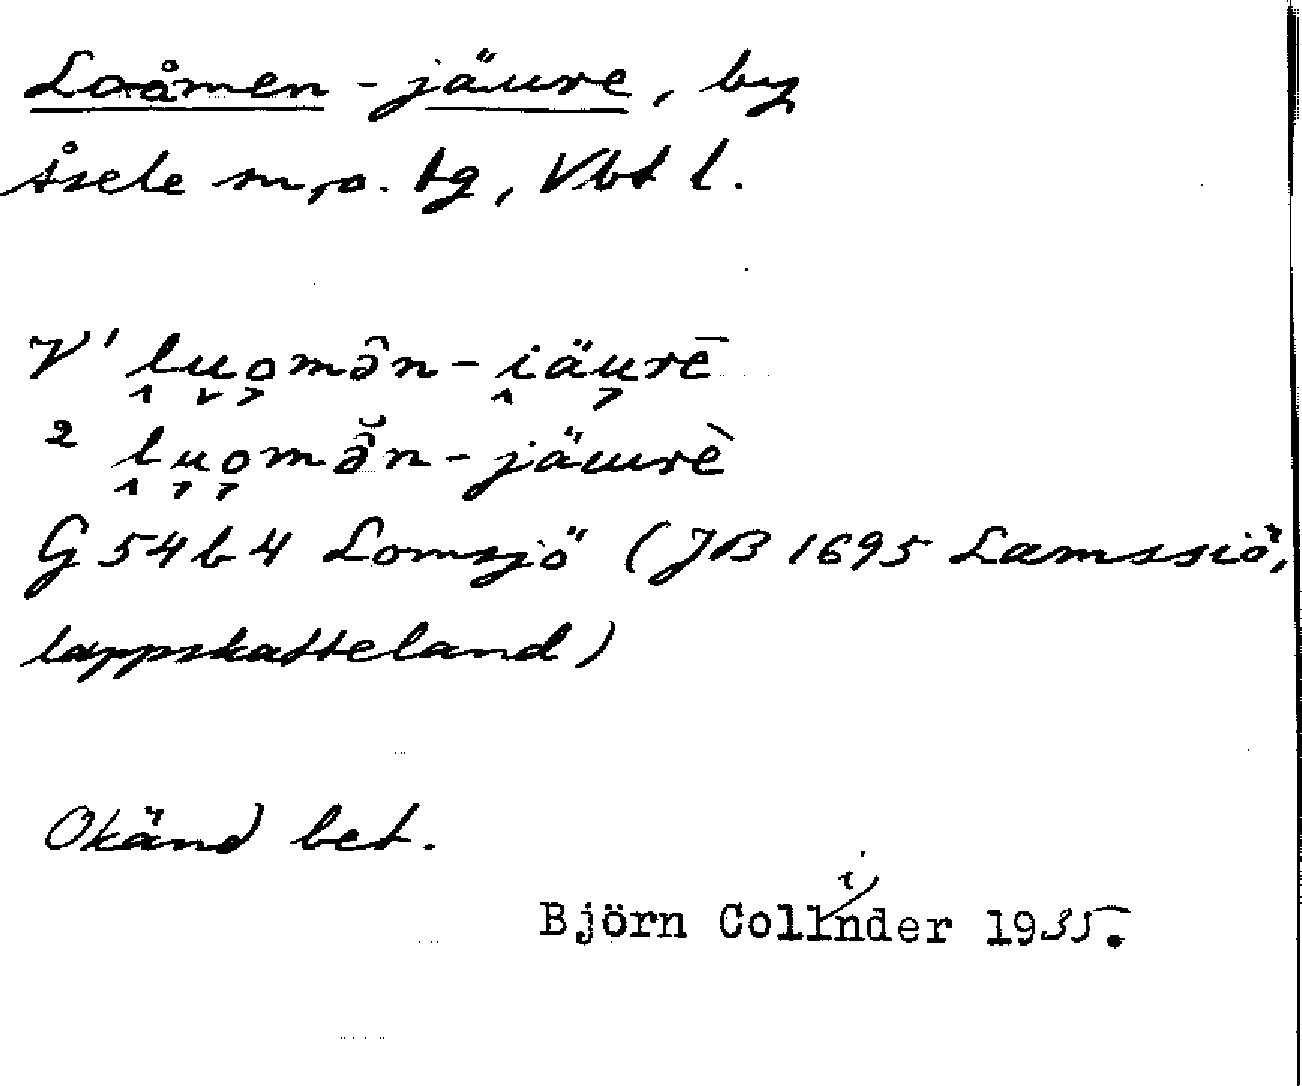 Loåmen - jäure, by
Åsele m.o. tg, Vbt l.
V¹ luomə̂n - iäurē
² luomə̆n - jäurè
G 54 b 4 Lomsjö (JB 1695 Lamssiö,
lappskatteland)
Okänd bet.
Björn Collinder 1935.